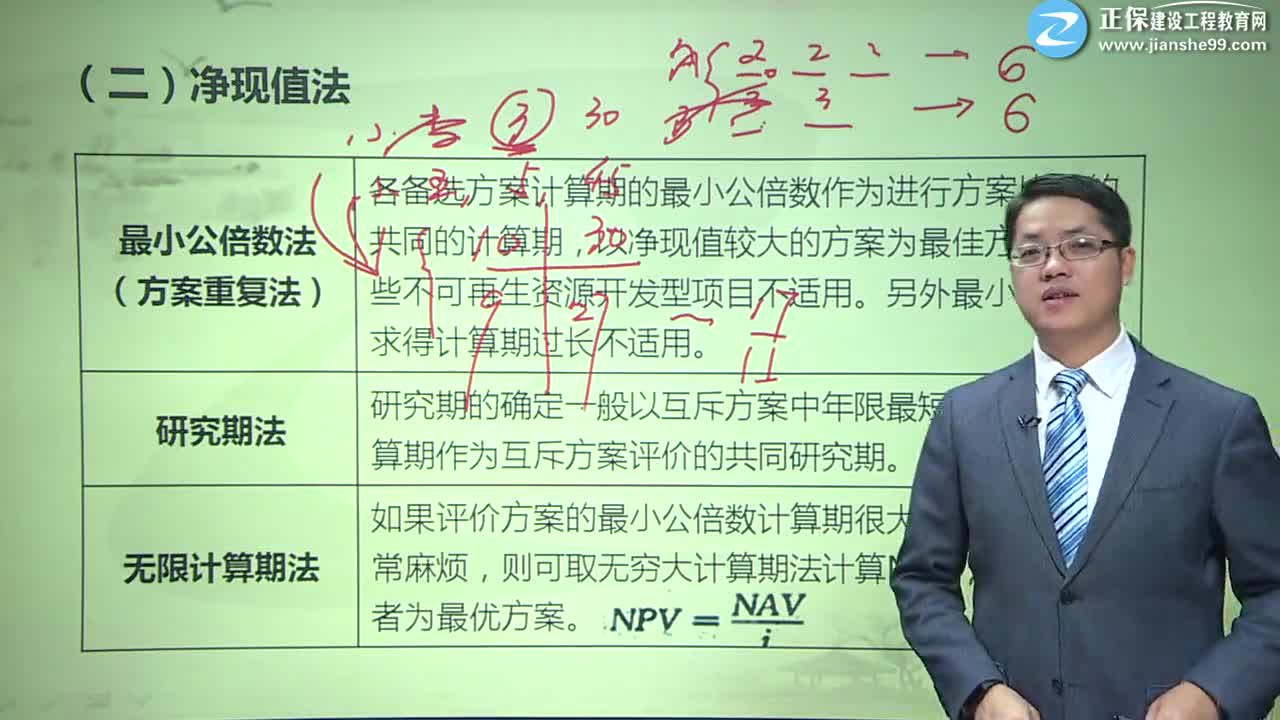 正保建设工程教育网
www.jianshe99.com
（二）净现值法
A 2 2 → 6
B 3 3 → 6
③ 30
最小公倍数法
（方案重复法）
各备选方案计算期的最小公倍数作为进行方案
共同的计算期，以净现值较大的方案为最佳方
些不可再生资源开发型项目不适用。另外最小
求得计算期过长不适用。
10 30
9 27 17
11
研究期法
研究期的确定一般以互斥方案中年限最短
算期作为互斥方案评价的共同研究期。
无限计算期法
如果评价方案的最小公倍数计算期很大
常麻烦，则可取无穷大计算期法计算N
者为最优方案。 NPV = NAV/i